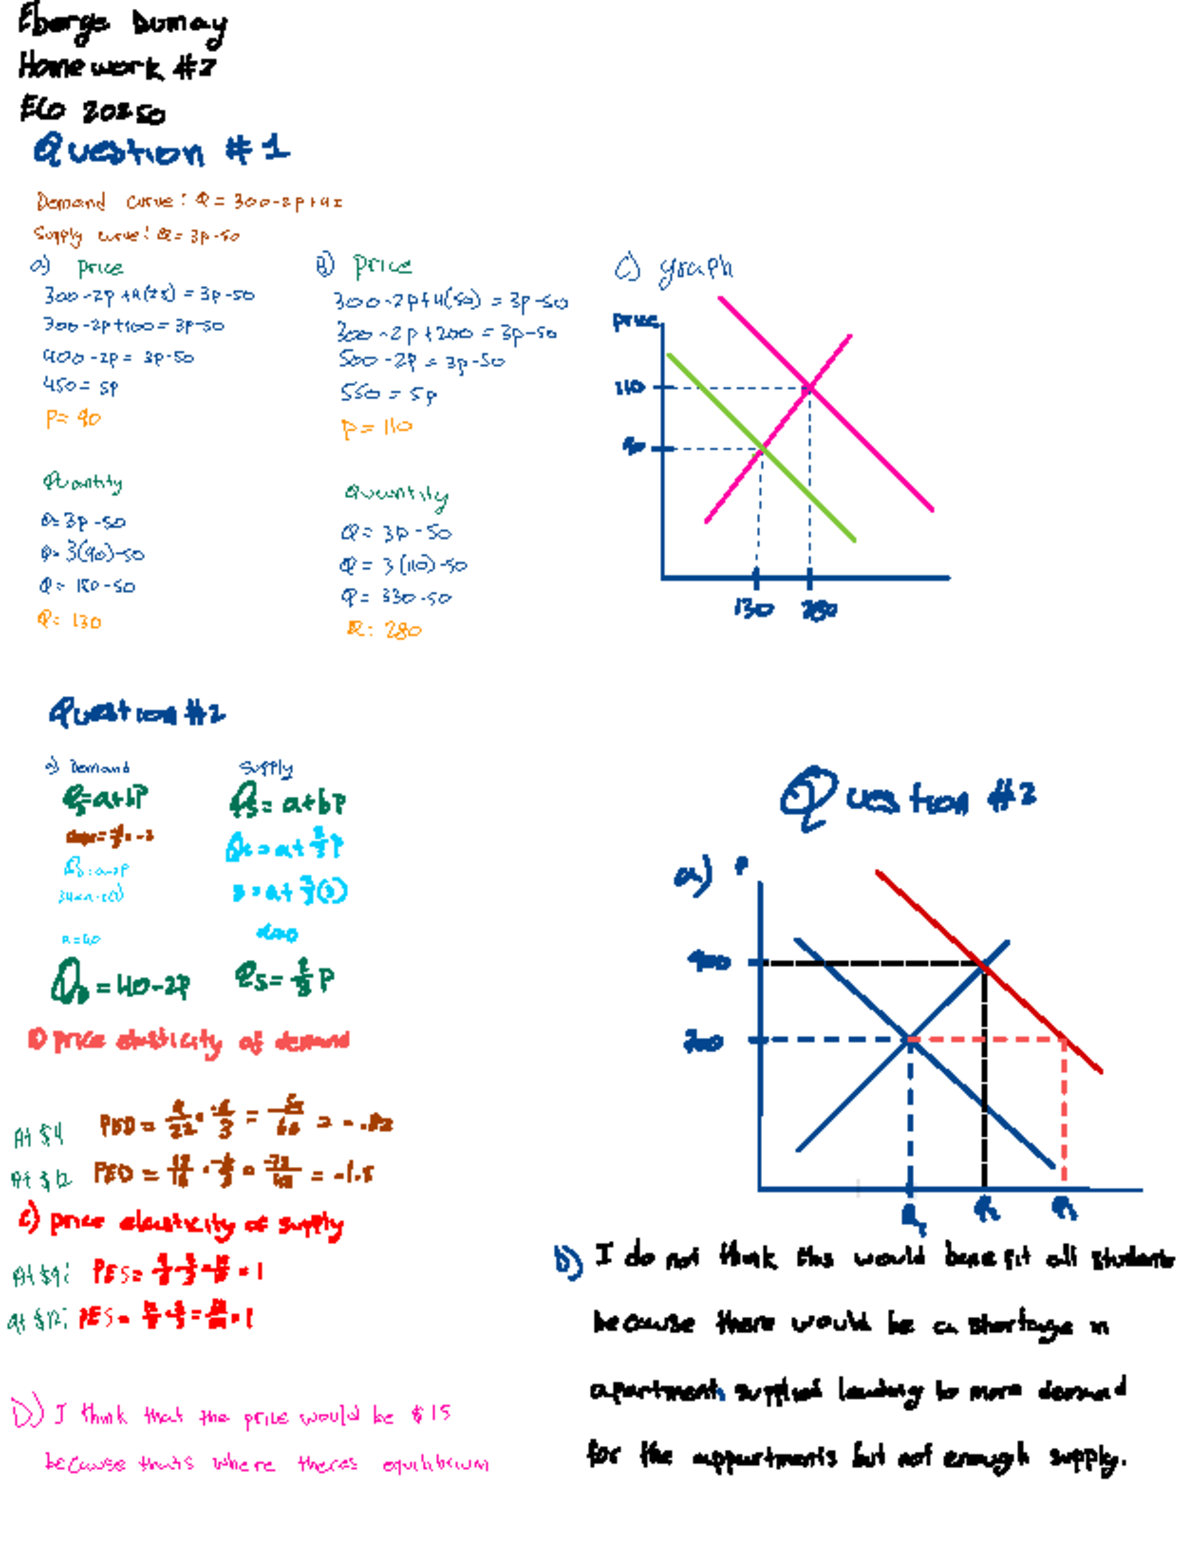 Homework #2
ECO 20250
Question #1
Demand curve: Q = 300-2p+4I
Supply curve: Q = 3p-50
a) price
300-2p+4(25) = 3p-50
300-2p+100 = 3p-50
400-2p = 3p-50
450 = 5p
P = 90
Quantity
Q = 3p-50
Q = 3(90)-50
Q = 180-50
Q = 130
B) price
300-2p+4(50) = 3p-50
300-2p+200 = 3p-50
500-2p = 3p-50
550 = 5p
p = 110
Quantity
Q = 3p-50
Q = 3(110)-50
Q = 330-50
Q = 280
C) graph
price
110
90
130 280
Question #2
a) Demand
= a+bP
a = 40
QD = 40-2P
Supply
QS = a+bP
= a+ 2/3 P
= a+ 2/3 ( )
a=0
QS = 2/3 P
B) price elasticity of demand
At $4 PED = = -.
At $12 PED = = -1.5
C) price elasticity of supply
At $9: PES = = 1
at $12: PES = = 1
D) I think that the price would be $15
because thats where theres equilibrium
Question #3
a) P
900
700
Q1 Q2 Q3
b) I do not think this would benefit all students
because there would be a shortage in
apartments supplied leading to more demand
for the appartments but not enough supply.